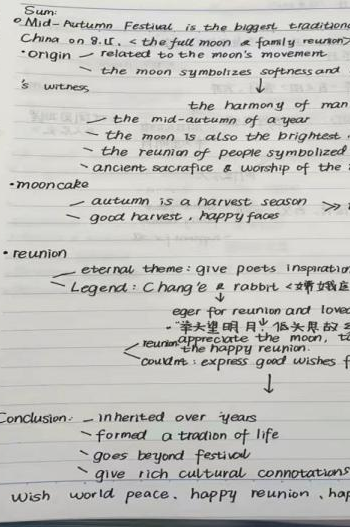 Sum:
Mid-Autumn Festival is the biggest tradition
China on 8.15, <the full moon & family reunion>
• origin — related to the moon's movement
— the moon symbolizes softness and
's witness ↓
the harmony of man
— the mid-autumn of a year
— the moon is also the brightest
— the reunion of people symbolized
— ancient sacrafice & worship of the
• mooncake
— autumn is a harvest season >>>
— good harvest, happy faces
• reunion
— eternal theme: give poets inspiratio
— Legend: Chang'e & rabbit <嫦娥
↓
eger for reunion and love
• "举头望明月, 低头思故
reunion: appreciate the moon,
the happy reunion.
couldnt: express good wishes f
↓
Conclusion: — inherited over years
— formed a tradion of life
— goes beyond festival
— give rich cultural connotations
wish world peace. happy reunion, hap